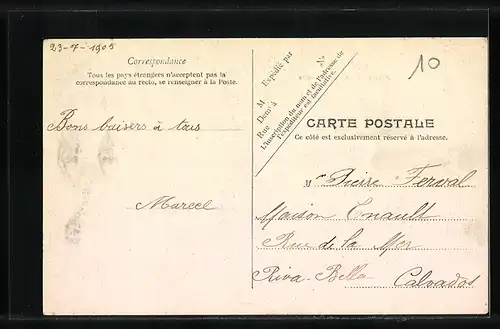 23-7-1905
Correspondance
Tous les pays étrangers n'acceptent pas la
correspondance au recto, se renseigner à la Poste.
Bons baisers à tous
Marcel
Expédié par
M
N°
Demt à
Rue
L'inscription du nom et de l'adresse de
l'expéditeur est facultative.
10
CARTE POSTALE
Ce côté est exclusivement réservé à l'adresse.
M Pierre Ferval
Maison Enault
Rue de la Mer
Riva-Bella Calvados